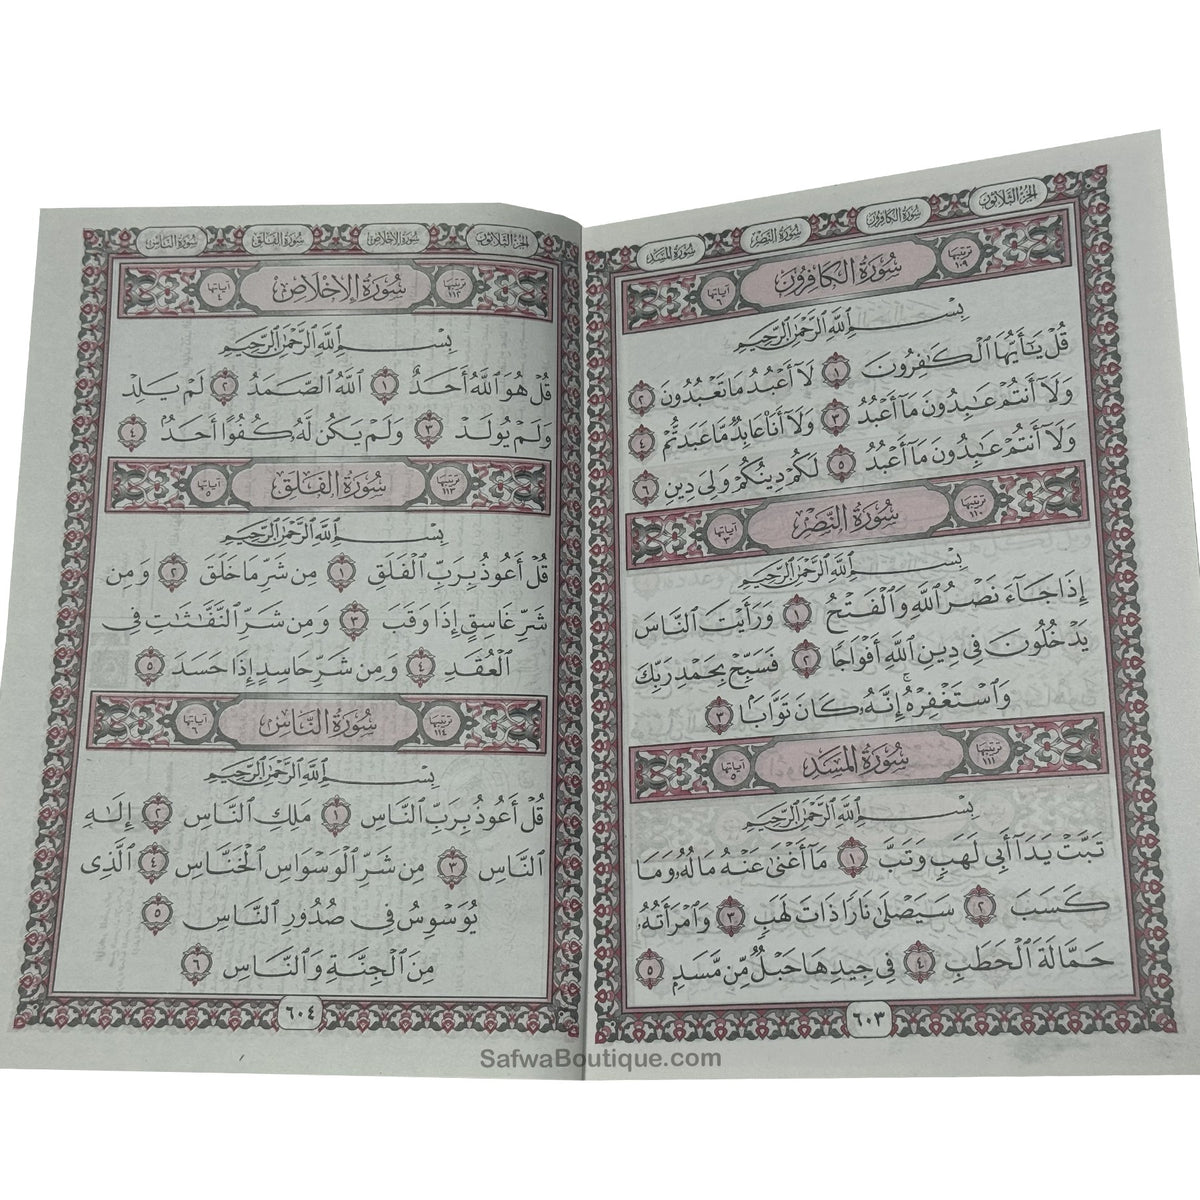 الجزء الثلاثون
سورة الكافرون
سورة النصر
سورة المسد
ترتيبها ١٠٩
سُورَةُ الكافِرُون
آياتها ٦
بِسْمِ اللَّهِ الرَّحْمَٰنِ الرَّحِيمِ
قُلْ يَٰٓأَيُّهَا الْكَٰفِرُونَ ١ لَآ أَعْبُدُ مَا تَعْبُدُونَ ٢
وَلَآ أَنتُمْ عَٰبِدُونَ مَآ أَعْبُدُ ٣ وَلَآ أَنَا۠ عَابِدٌ مَّا عَبَدتُّمْ ٤
وَلَآ أَنتُمْ عَٰبِدُونَ مَآ أَعْبُدُ ٥ لَكُمْ دِينُكُمْ وَلِىَ دِينِ ٦
ترتيبها ١١٠
سُورَةُ النَّصْر
آياتها ٣
بِسْمِ اللَّهِ الرَّحْمَٰنِ الرَّحِيمِ
إِذَا جَآءَ نَصْرُ اللَّهِ وَالْفَتْحُ ١ وَرَأَيْتَ النَّاسَ
يَدْخُلُونَ فِى دِينِ اللَّهِ أَفْوَاجًا ٢ فَسَبِّحْ بِحَمْدِ رَبِّكَ
وَاسْتَغْفِرْهُ ۚ إِنَّهُۥ كَانَ تَوَّابًۢا ٣
ترتيبها ١١١
سُورَةُ المَسَد
آياتها ٥
بِسْمِ اللَّهِ الرَّحْمَٰنِ الرَّحِيمِ
تَبَّتْ يَدَآ أَبِى لَهَبٍ وَتَبَّ ١ مَآ أَغْنَىٰ عَنْهُ مَالُهُۥ وَمَا
كَسَبَ ٢ سَيَصْلَىٰ نَارًا ذَاتَ لَهَبٍ ٣ وَامْرَأَتُهُۥ
حَمَّالَةَ الْحَطَبِ ٤ فِى جِيدِهَا حَبْلٌ مِّن مَّسَدٍۭ ٥
٦٠٣
الجزء الثلاثون
سورة الإخلاص
سورة الفلق
سورة الناس
ترتيبها ١١٢
سُورَةُ الإِخْلَاص
آياتها ٤
بِسْمِ اللَّهِ الرَّحْمَٰنِ الرَّحِيمِ
قُلْ هُوَ اللَّهُ أَحَدٌ ١ اللَّهُ الصَّمَدُ ٢ لَمْ يَلِدْ
وَلَمْ يُولَدْ ٣ وَلَمْ يَكُن لَّهُۥ كُفُوًا أَحَدٌۢ ٤
ترتيبها ١١٣
سُورَةُ الفَلَق
آياتها ٥
بِسْمِ اللَّهِ الرَّحْمَٰنِ الرَّحِيمِ
قُلْ أَعُوذُ بِرَبِّ الْفَلَقِ ١ مِن شَرِّ مَا خَلَقَ ٢ وَمِن
شَرِّ غَاسِقٍ إِذَا وَقَبَ ٣ وَمِن شَرِّ النَّفَّٰثَٰتِ فِى
الْعُقَدِ ٤ وَمِن شَرِّ حَاسِدٍ إِذَا حَسَدَ ٥
ترتيبها ١١٤
سُورَةُ النَّاس
آياتها ٦
بِسْمِ اللَّهِ الرَّحْمَٰنِ الرَّحِيمِ
قُلْ أَعُوذُ بِرَبِّ النَّاسِ ١ مَلِكِ النَّاسِ ٢ إِلَٰهِ
النَّاسِ ٣ مِن شَرِّ الْوَسْوَاسِ الْخَنَّاسِ ٤ الَّذِى
يُوَسْوِسُ فِى صُدُورِ النَّاسِ ٥
مِنَ الْجِنَّةِ وَالنَّاسِ ٦
٦٠٤
SafwaBoutique.com